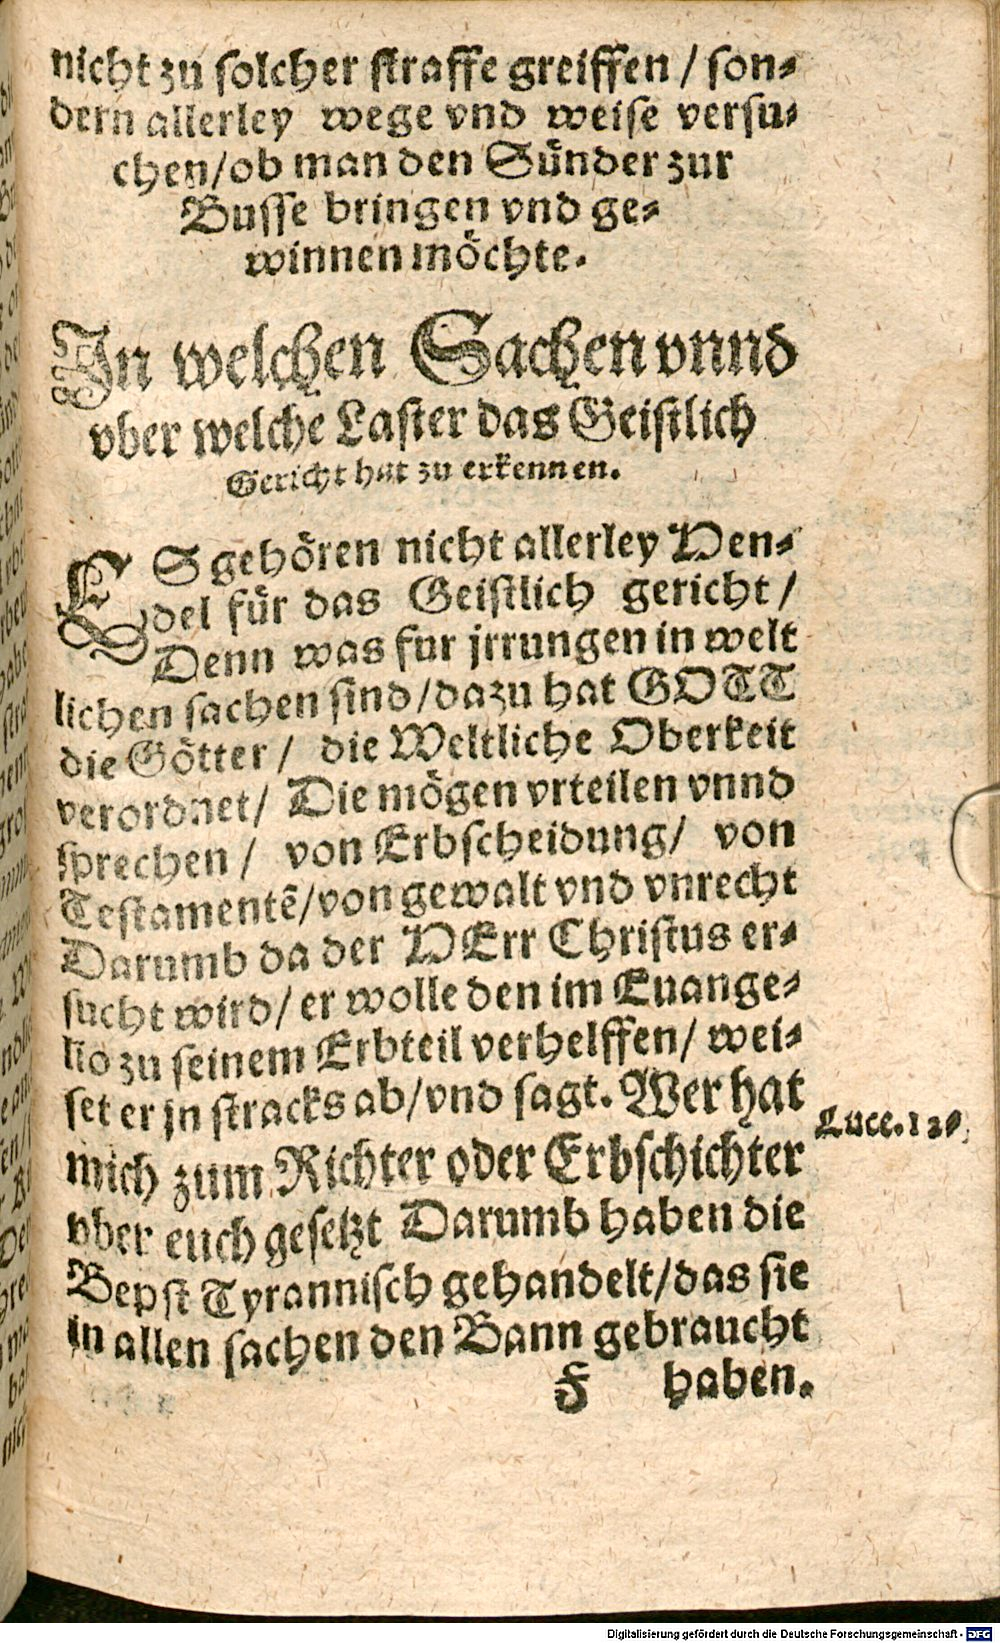 nicht zu solcher straffe greiffen / son⸗
dern allerley wege vnd weise versu⸗
chen/ob man den Sünder zur
Busse bringen vnd ge⸗
winnen möchte.
In welchen Sachen vnnd
vber welche Laster das Geistlich
Gericht hat zu erkennen.
ES gehören nicht allerley Hen⸗
del für das Geistlich gericht /
Denn was fur jrrungen in welt
lichen sachen sind/dazu hat GOTT
die Götter / die Weltliche Oberkeit
verordnet/ Die mögen vrteilen vnnd
sprechen / von Erbscheidung/ von
Testamentē/von gewalt vnd vnrecht
Darumb da der HErr Christus er⸗
sucht wird/ er wolle den im Euange⸗
lio zu seinem Erbteil verhelffen/ wei⸗
set er jn stracks ab/vnd sagt. Wer hat
Luce. 12.
mich zum Richter oder Erbschichter
vber euch gesetzt Darumb haben die
Bepst Tyrannisch gehandelt/das sie
in allen sachen den Bann gebraucht
F haben.
Digitalisierung gefördert durch die Deutsche Forschungsgemeinschaft - DFG